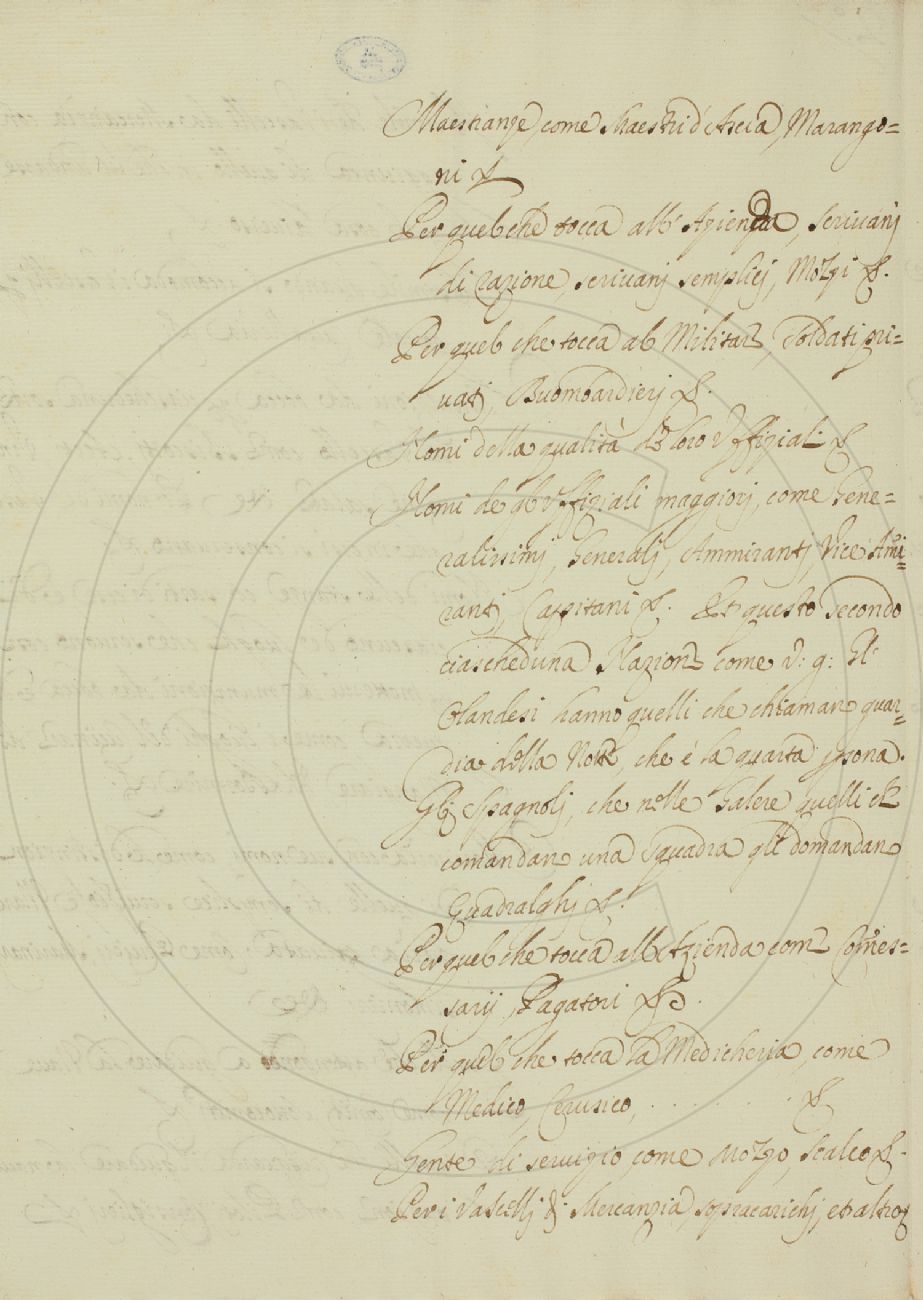 Maestranze, come Maestri d'Ascia, Marango=
ni &
Per quel che tocca all' Azienda, scrivanj
di razione, scrivanj semplicj, Mozzi &.
Per quel che tocca al Militare, Soldati pri=
vatj, Buombardierj &.
Nomi della qualità de loro Uffiziali &
Nomi de gl' Uffiziali maggiorj, come Gene=
ralissimj, Generalj, Ammirantj, Vice Ami=
rantj, Cappitani &. Et questo secondo
ciascheduna Nazione come v: g: Gl'
Olandesi hanno quelli che chiamano guar=
dia della Notte, che è la quarta psona.
Glj Spagnolj, che nelle Galere quelli che
comandano una squadra gli domandano
Quadralghj &.
Per quel che tocca all' Azienda come Comes=
sarij, Pagatori &c.
Per quel che tocca la Medicheria, come
Medico, Cerusico, . . . . . . . &
Gente di servizio come Mozzo, Scalco &.
Per i Vascellj di Mercanzia, sopracarichj, et altroj